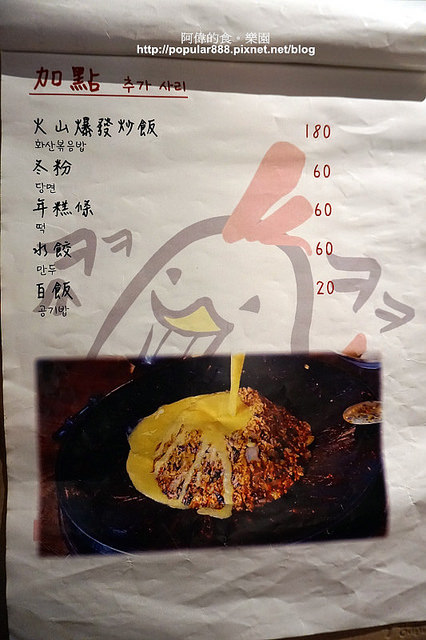 阿偉的食。樂園
http://popular888.pixnet.net/blog
加點 추가 사리
火山爆發炒飯 180
화산볶음밥
冬粉 60
당면
年糕條 60
떡
水餃 60
만두
白飯 20
공기밥
ㅋㅋ ㅋㅋ